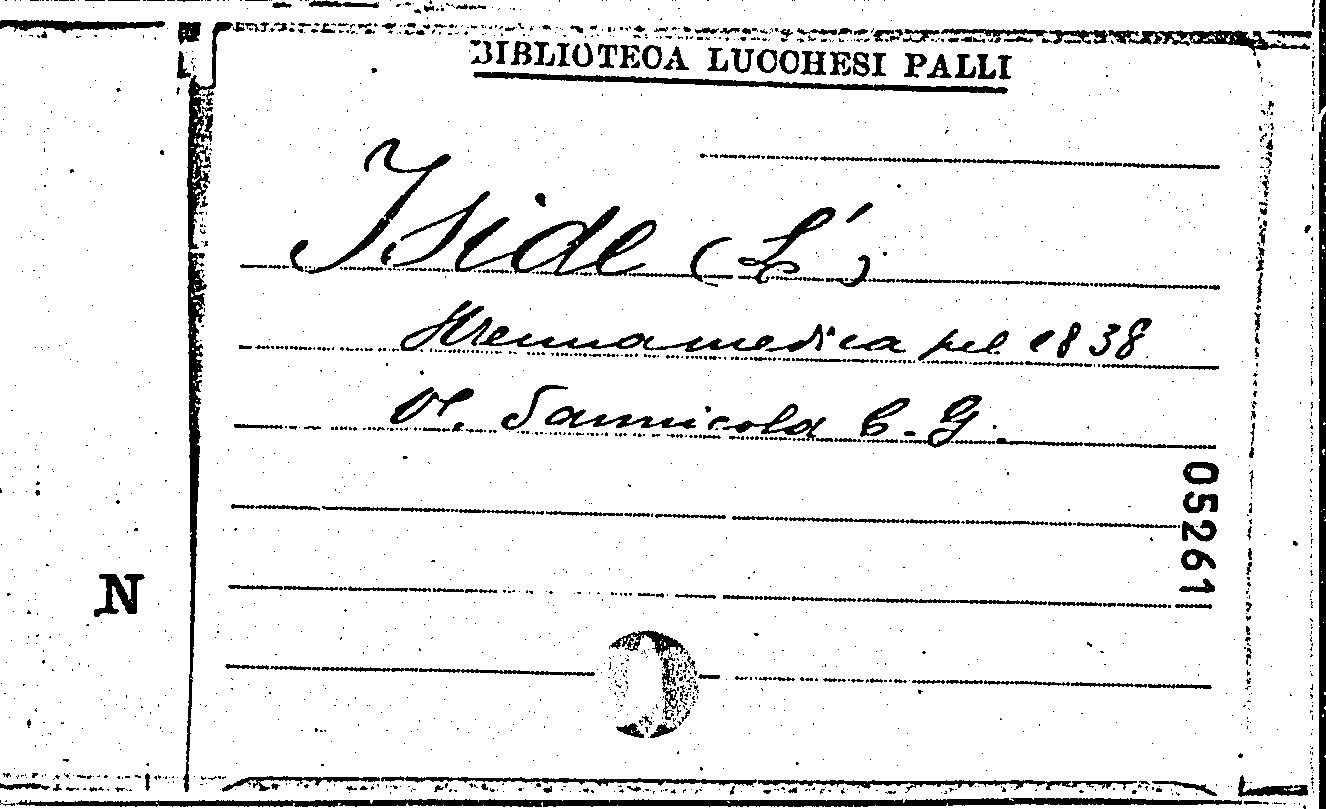 BIBLIOTECA LUCCHESI PALLI
Iside (L')
Strenna medica pel 1838
V. Sannicola C. G.
05261
N